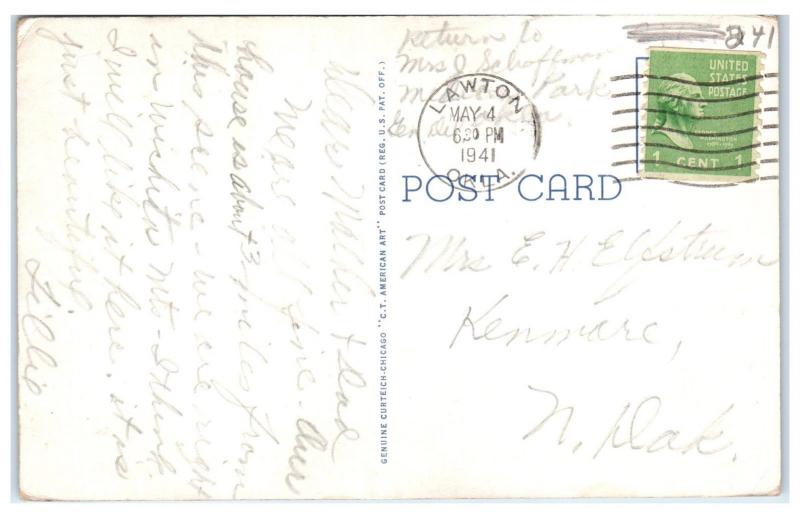 Dear Mother & Dad
We are all fine. Our
house is about 3 miles from
this scene. We are right
in Wichita Mts. I think
I will like it here. it is
just beautiful
Lillie
GENUINE CURTEICH-CHICAGO "C.T. AMERICAN ART" POST CARD (REG. U.S. PAT. OFF.)
Return to
Mrs J
Park
241
UNITED
STATES
POSTAGE
1 CENT 1
LAWTON
MAY 4
6:30 PM
1941
OKLA.
POST CARD
Mrs E. H. Elfstrum
Kenmare,
N. Dak.